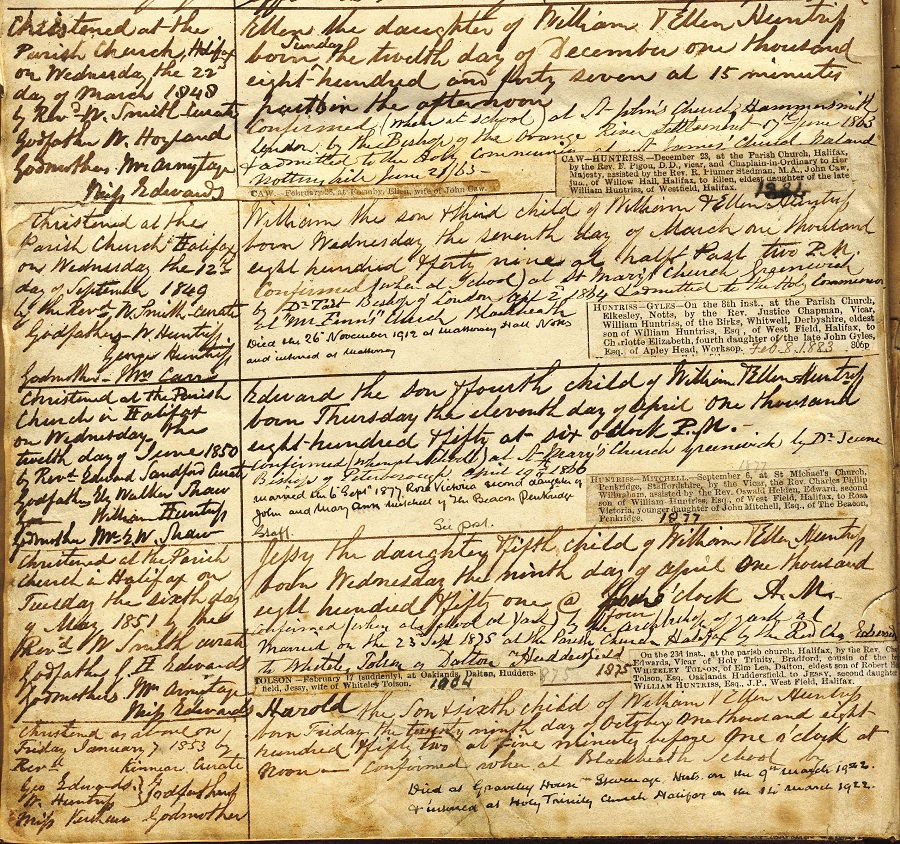 Christened at the
Parish Church, Halifax
on Wednesday the 22d
day of March 1848
by Revd. W. Smith Curate
Godfather W. Hoyland
Godmothers Mrs Armytage
Miss Edwards
Ellen the daughter of William & Ellen Huntriss
born Sunday the twelfth day of December one thousand
eight hundred and forty seven at 15 minutes
past in the afternoon
Confirmed (when at school) at St John's Church, Hammersmith
London by the Bishop of the Orange River Settlement 17th June 1863
& admitted to the Holy Communion at St James' Church
Notting hill June 21/63
CAW-HUNTRISS.—December 23, at the Parish Church, Halifax,
by the Rev. F. Pigou, D.D., vicar, and Chaplain-in-Ordinary to Her
Majesty, assisted by the Rev. R. Plumer Stedman, M.A., John Caw,
jun., of Willow Hall, Halifax, to Ellen, eldest daughter of the late
William Huntriss, of Westfield, Halifax. 1881
CAW.—February 28, at Ellen, wife of John Caw.
Christened at the
Parish Church Halifax
on Wednesday the 12th
day of September 1849
by the Rev. W. Smith Curate
Godfathers W. Huntriss
George Huntriss
Godmother - Mrs Carr
William the son & third child of William & Ellen Huntriss
born Wednesday the seventh day of March one thousand
eight hundred & forty nine at half Past two P.M.
Confirmed (when at School) at St Mary's Church, Greenwich
by Dr Tait Bishop of London Apl 2d 1864 & admitted to the Holy Communion
at "Mr Fenn's" Church Blackheath
Died the 26th November 1912 at Mattersey Hall Notts
and interred at Mattersey
HUNTRISS—GYLES—On the 8th inst., at the Parish Church,
Elkesley, Notts, by the Rev. Justice Chapman, Vicar,
William Huntriss, of the Birks, Whitwell, Derbyshire, eldest
son of William Huntriss, Esq., of West Field, Halifax, to
Charlotte Elizabeth, fourth daughter of the late John Gyles,
Esq., of Apley Head, Worksop. Feb. 8. 1883 806p
Christened at the Parish
Church in Halifax
on Wednesday the
twelfth day of June 1850
by Revd. Edward Sandford Curate
Godfathers Ely Walker Shaw
William Huntriss
Godmother Mrs E. W. Shaw
Edward the son & fourth child of William & Ellen Huntriss
born Thursday the eleventh day of April One thousand
eight-hundred & fifty at six o'clock P.M.-
Confirmed (when at School) at St Mary's Church Greenwich by Dr Jeune
Bishop of Peterborough April 19th 1866
Married the 6th Sept 1877. Rosa Victoria second daughter of
John and Mary Ann Mitchell of The Beacon Penkridge
Staff.
HUNTRISS—MITCHELL.—September 6, at St Michael's Church,
Penkridge, Staffordshire, by the Vicar, the Rev. Charles Philip
Wilbraham, assisted by the Rev. Oswald Helden, Edward, second
son of William Huntriss, Esq., of West Field, Halifax, to Rosa
Victoria, younger daughter of John Mitchell, Esq., of The Beacon,
Penkridge. 1877
Christened at the Parish
Church in Halifax on
Tuesday the sixth day
of May 1851 by the
Rev'd W Smith curate
Godfather J. H Edwards
Godmothers Mrs Armitage
Miss Edwards
Jessy the daughter & fifth child of William & Ellen Huntriss
born Wednesday the ninth day of April One thousand
eight hundred & fifty one @ four o'clock A.M.
Confirmed (when at school at York) by the Archbishop of York at
Married on the 23rd Sept 1875 at the Parish Church Halifax by the Rev Chas Edwards
to Whiteley Tolson of Dalton Huddersfield
TOLSON—February 17 (suddenly), at Oaklands, Dalton, Hudders-
field, Jessy, wife of Whiteley Tolson. 1904
1875
On the 23d inst., at the parish church, Halifax, by the Rev. Cha
Edwards, Vicar of Holy Trinity, Bradford, cousin of the b
WHITELEY TOLSON, of Elm Lea, Dalton, eldest son of Robert H
Tolson, Esq., Oaklands, Huddersfield, to JESSY, second daughter
WILLIAM HUNTRISS, Esq., J.P., West Field, Halifax.
Christened as above on
Friday January 7 1853 by
Revd Kinnear Curate
Geo Edwards
W. Huntriss } Godfathers
Miss Godmother
Harold the Son & sixth child of William & Ellen Huntriss
born Friday the twenty ninth day of October One thousand eight
hundred & fifty two at five minutes before One o'clock at
noon — Confirmed when at Blackheath School by
Died at Graveley House Stevenage, Herts. on the 9th March 1922.
& interred at Holy Trinity Church Halifax on the 14th March 1922.